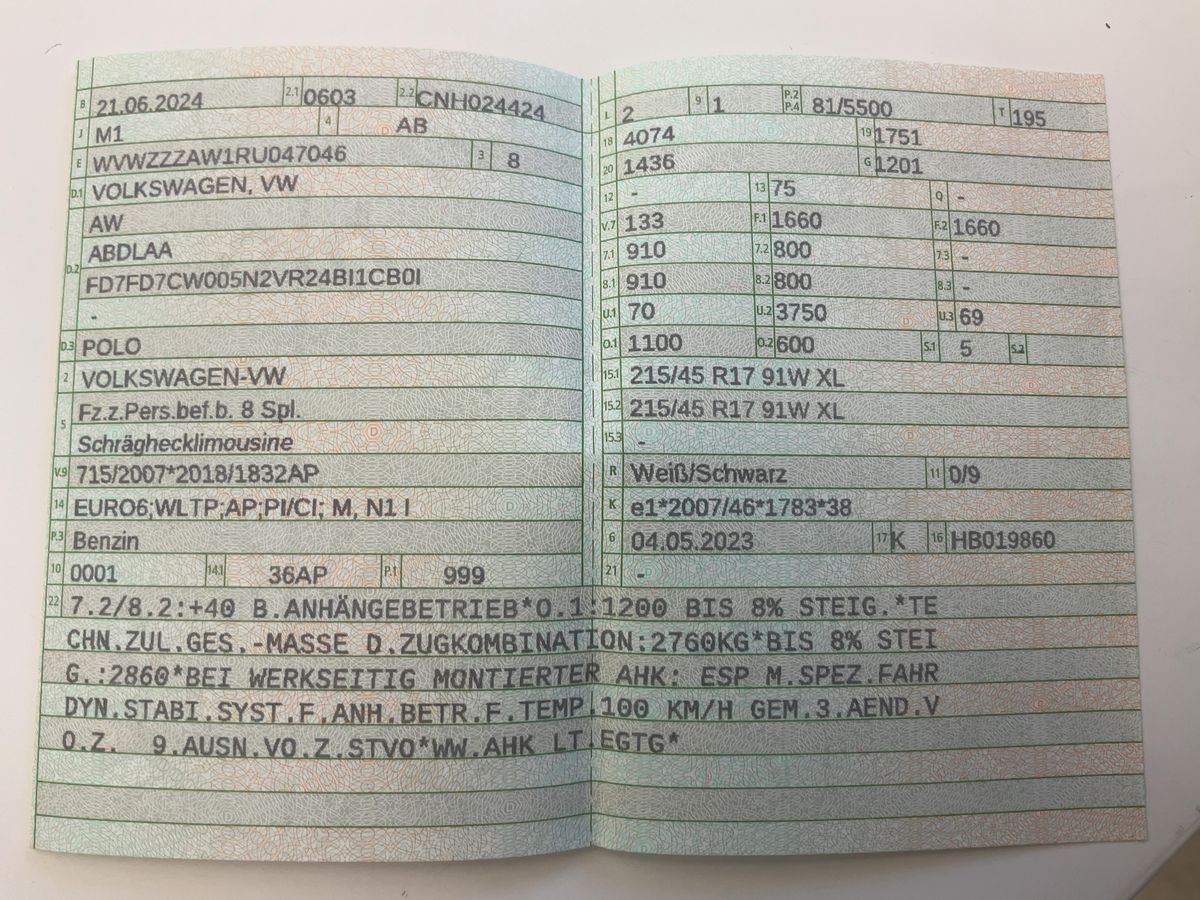 B 21.06.2024 2.1 0603 2.2 CNH024424
J M1 4 AB
E WVWZZZAW1RU047046 3 8
D.1 VOLKSWAGEN, VW
AW
D.2 ABDLAA
FD7FD7CW005N2VR24BI1CB0I
-
D.3 POLO
2 VOLKSWAGEN-VW
5 Fz.z.Pers.bef.b. 8 Spl.
Schräghecklimousine
V.9 715/2007*2018/1832AP
14 EURO6;WLTP;AP;PI/CI; M, N1 I
P.3 Benzin
10 0001 14.1 36AP P.1 999
L 2 9 1 P.2 P.4 81/5500 T 195
18 4074 19 1751
20 1436 G 1201
12 - 13 75 Q -
V.7 133 F.1 1660 F.2 1660
7.1 910 7.2 800 7.3 -
8.1 910 8.2 800 8.3 -
U.1 70 U.2 3750 U.3 69
O.1 1100 O.2 600 S.1 5 S.2
15.1 215/45 R17 91W XL
15.2 215/45 R17 91W XL
15.3 -
R Weiß/Schwarz 11 0/9
K e1*2007/46*1783*38
6 04.05.2023 17 K 16 HB019860
21 -
22 7.2/8.2:+40 B.ANHÄNGEBETRIEB*O.1:1200 BIS 8% STEIG.*TE
CHN.ZUL.GES.-MASSE D.ZUGKOMBINATION:2760KG*BIS 8% STEI
G.:2860*BEI WERKSEITIG MONTIERTER AHK: ESP M.SPEZ.FAHR
DYN.STABI.SYST.F.ANH.BETR.F.TEMP.100 KM/H GEM.3.AEND.V
O.Z. 9.AUSN.VO.Z.STVO*WW.AHK LT.EGTG*